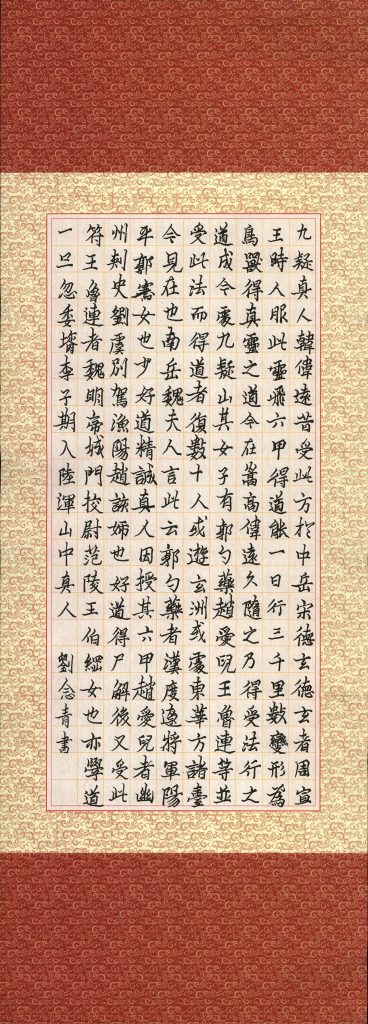 九疑真人韓偉遠昔受此方於中岳宋德玄德玄者周宣
王時人服此靈飛六甲得道能一日行三千里數變形為
鳥獸得真靈之道今在嵩高偉遠久隨之乃得受法行之
道成今處九疑山其女子有郭勺藥趙愛兒王魯連等並
受此法而得道者復數十人或遊玄洲或處東華方諸臺
今見在也南岳魏夫人言此云郭勺藥者漢度遼將軍陽
平郭騫女也少好道精誠真人因授其六甲趙愛兒者幽
州刺史劉虞別駕漁陽趙該姊也好道得尸解後又受此
符王魯連者魏明帝城門校尉范陵王伯綱女也亦學道
一旦忽委壻李子期入陸渾山中真人 劉念青書